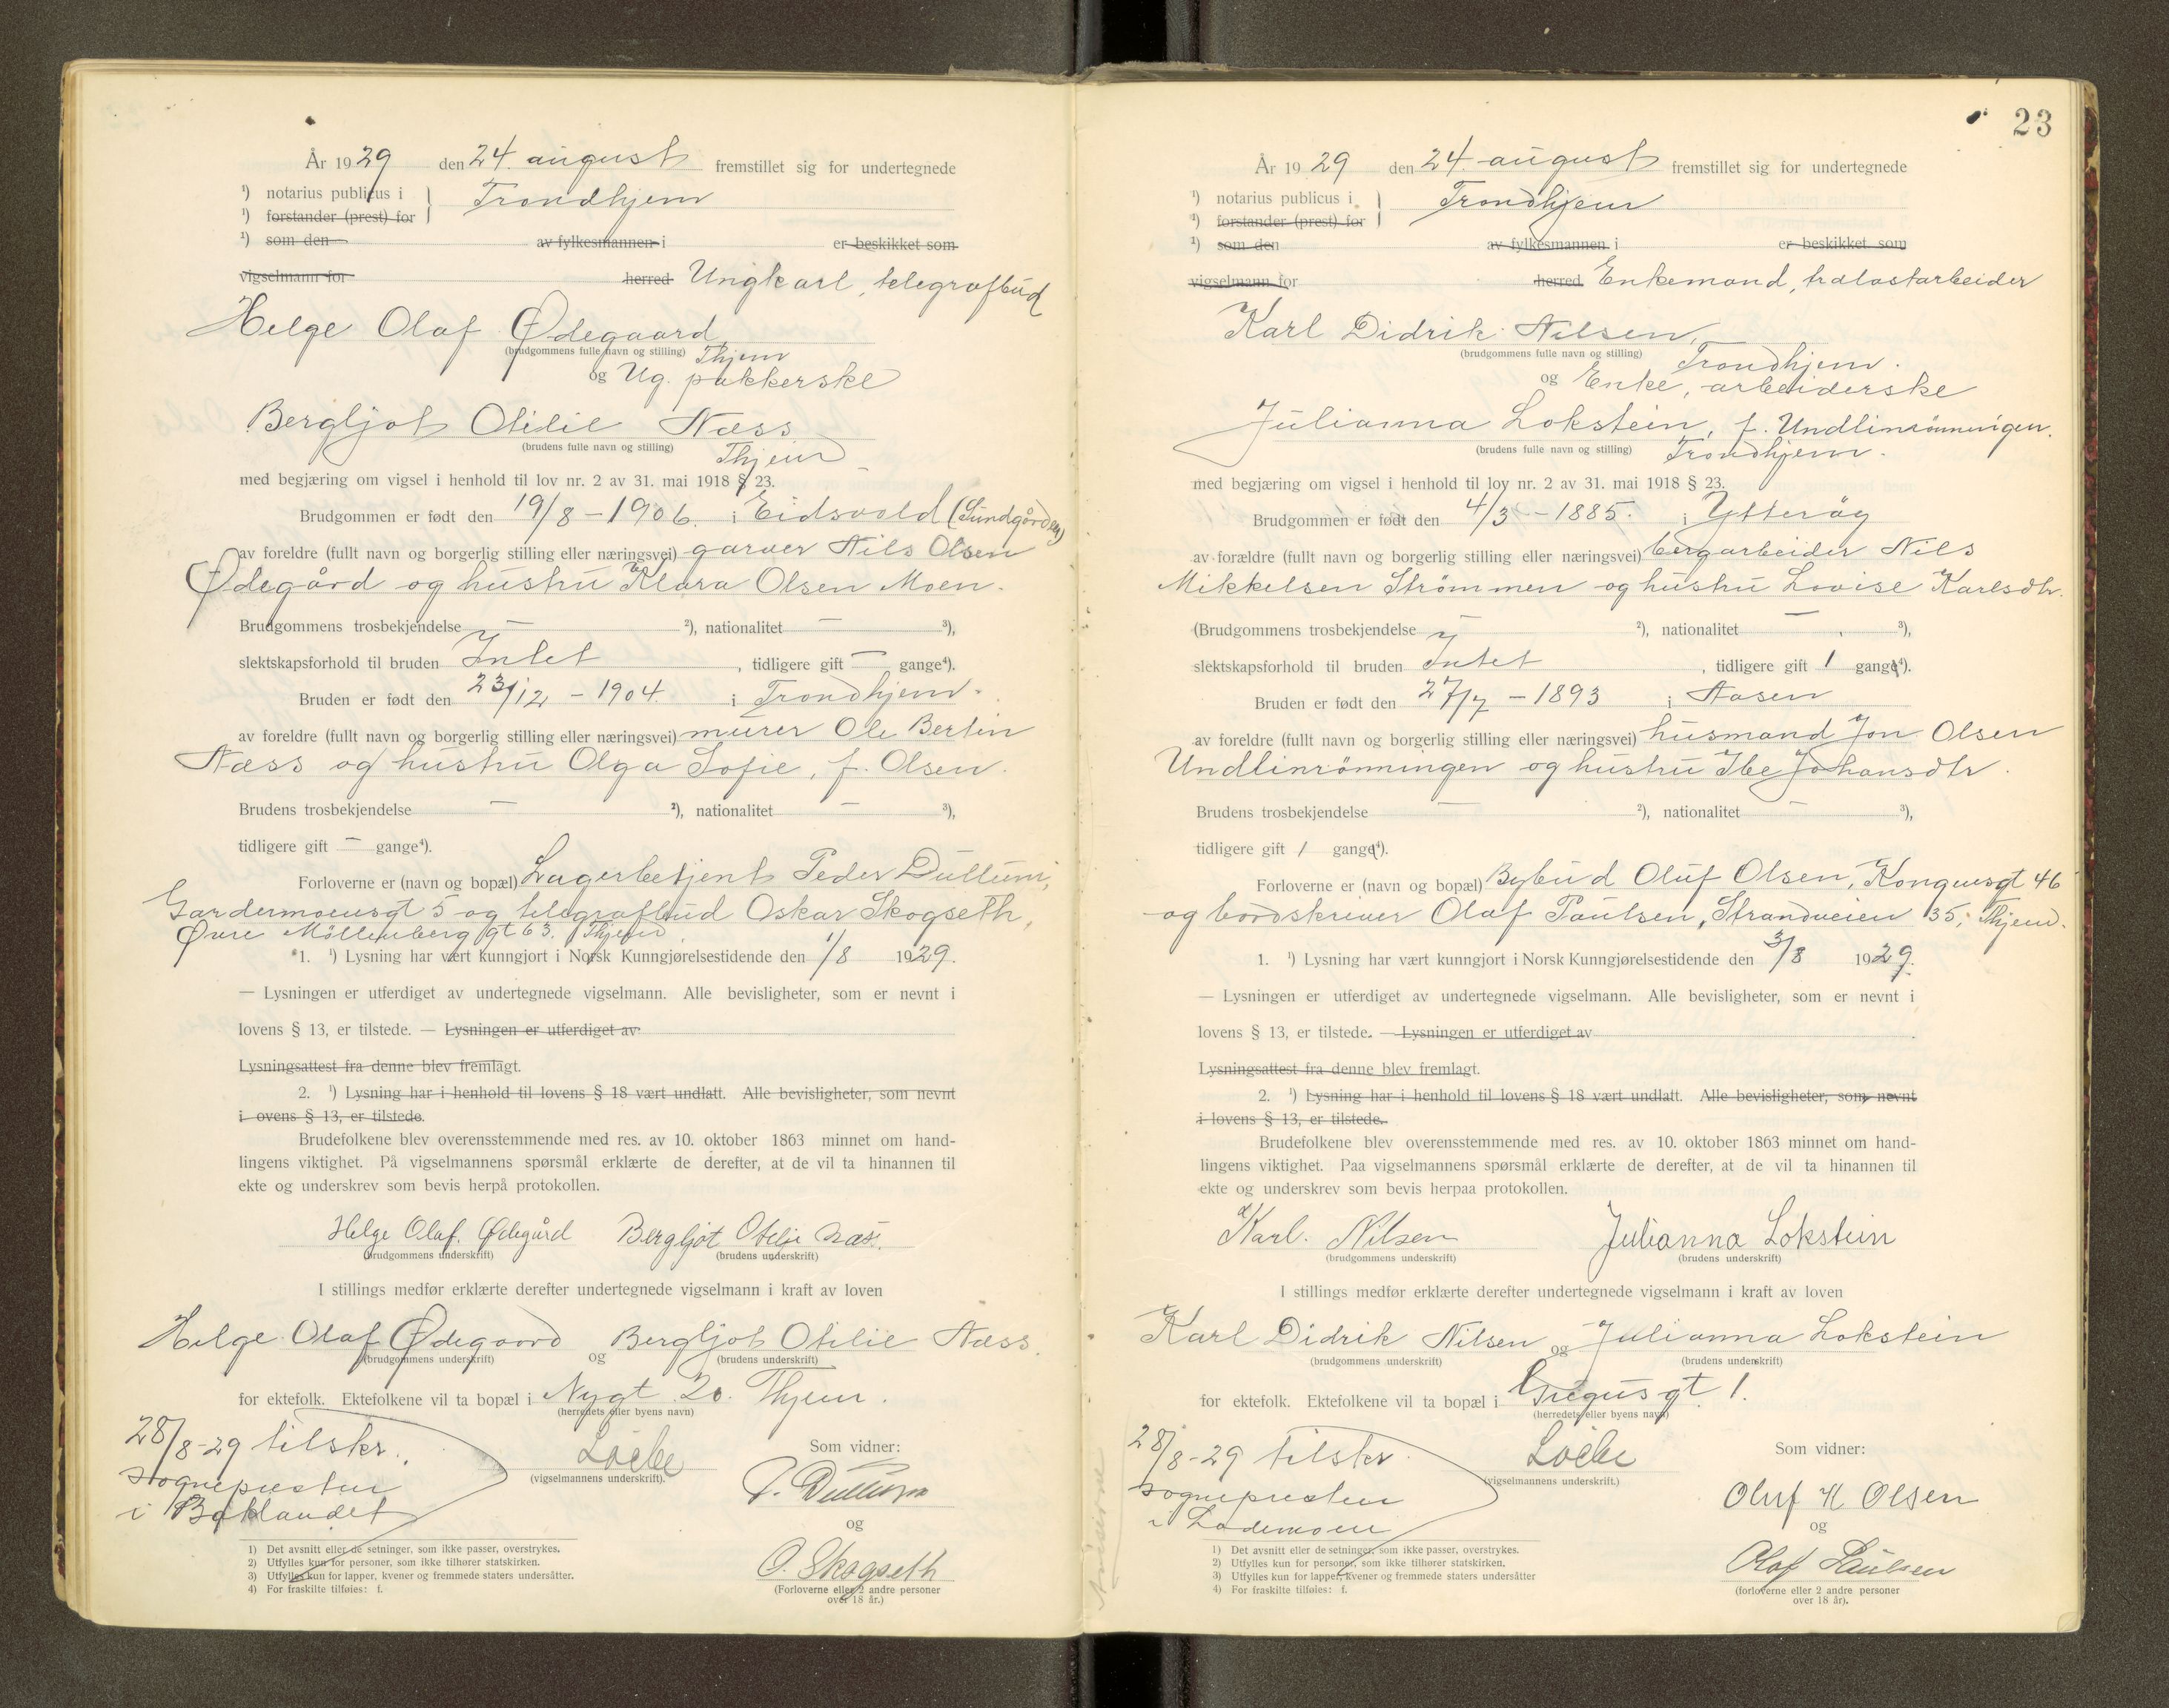 År 1929 den 24. august fremstillet sig for undertegnede
¹) notarius publicus i Trondhjem
¹) forstander (prest) for
¹) som den av fylkesmannen i er beskikket som
vigselmann for herred Ungkarl, telegrafbud
Helge Olaf Ødegaard,
(brudgommens fulle navn og stilling) Thjem
og Ug. pakkerske
Bergljot Otilie Næss
(brudens fulle navn og stilling) Thjem
med begjæring om vigsel i henhold til lov nr. 2 av 31. mai 1918 § 23.
Brudgommen er født den 19/8 - 1906. i Eidsvold (Sundgården)
av foreldre (fullt navn og borgerlig stilling eller næringsvei) garver Nils Olsen
Ødegård og hustru Klara Olsen Moen.
Brudgommens trosbekjendelse — ²), nationalitet — ³),
slektskapsforhold til bruden Intet, tidligere gift — gange⁴).
Bruden er født den 23/12 - 1904. i Trondhjem.
av foreldre (fullt navn og borgerlig stilling eller næringsvei) murer Ole Bertin
Næss og hustru Olga Sofie, f. Olsen.
Brudens trosbekjendelse — ²), nationalitet — ³),
tidligere gift — gange⁴).
Forloverne er (navn og bopæl) Lagerbetjent Peder Dullum,
Gardermoensgt 5 og telegrafbud Oskar Skogseth,
Øvre Möllenberg gt 63. Thjem
1. ¹) Lysning har vært kunngjort i Norsk Kunngjørelsestidende den 1/8 1929.
— Lysningen er utferdiget av undertegnede vigselmann. Alle bevisligheter, som er nevnt i
lovens § 13, er tilstede. — Lysningen er utferdiget av
Lysningsattest fra denne blev fremlagt.
2. ¹) Lysning har i henhold til lovens § 18 vært undlatt. Alle bevisligheter, som nevnt
i ovens § 13, er tilstede.
Brudefolkene blev overensstemmende med res. av 10. oktober 1863 minnet om hand-
lingens viktighet. På vigselmannens spørsmål erklærte de derefter, at de vil ta hinannen til
ekte og underskrev som bevis herpå protokollen.
Helge Olaf. Ødegård Bergljot Otilie Næss.
(brudgommens underskrift) (brudens underskrift)
I stillings medfør erklærte derefter undertegnede vigselmann i kraft av loven
Helge Olaf Ødegaard og Bergljot Otilie Næss.
(brudgommens underskrift) (brudens underskrift)
for ektefolk. Ektefolkene vil ta bopæl i Nygt. 20. Thjem.
(herredets eller byens navn)
28/8-29 tilskr.
sognepresten
i Baklandet
(vigselmannens underskrift).
Som vidner:
P. Dullum
og
O. Skogseth
(Forloverne eller 2 andre personer
over 18 år.)
1) Det avsnitt eller de setninger, som ikke passer, overstrykes.
2) Utfylles kun for personer, som ikke tilhører statskirken.
3) Utfylles kun for lapper, kvener og fremmede staters undersåtter.
4) For fraskilte tilføies: f.
23
År 1929 den 24. august fremstillet sig for undertegnede
¹) notarius publicus i Trondhjem
¹) forstander (prest) for
¹) som den av fylkesmannen i er beskikket som
vigselmann for herred Enkemand, trælastarbeider
Karl Didrik Nilsen,
(brudgommens fulle navn og stilling) Trondhjem.
og Enke, arbeiderske
Julianna Lokstein, f. Undlinrönningen.
(brudens fulle navn og stilling) Trondhjem.
med begjæring om vigsel i henhold til lov nr. 2 av 31. mai 1918 § 23.
Brudgommen er født den 4/3 - 1885. i Ytteröy
av forældre (fullt navn og borgerlig stilling eller næringsvei) bergarbeider Nils
Mikkelsen Strömmen og hustru Lovise Karlsdtr.
(Brudgommens trosbekjendelse — ²), nationalitet — ³),
slektskapsforhold til bruden Intet, tidligere gift 1 gang⁴).
Bruden er født den 27/7 - 1893 i Aasen
av foreldre (fullt navn og borgerlig stilling eller næringsvei) husmand Jon Olsen
Undlinrönningen og hustru Ibe Johansdtr.
Brudens trosbekjendelse — ²), nationalitet — ³),
tidligere gift 1 gang⁴).
Forloverne er (navn og bopæl) Bybud Oluf Olsen, Kongensgt 46
og bordskriver Olaf Paulsen, Strandveien 35, Thjem.
1. ¹) Lysning har vært kunngjort i Norsk Kunngjørelsestidende den 3/8 1929.
— Lysningen er utferdiget av undertegnede vigselmann. Alle bevisligheter, som er nevnt i
lovens § 13, er tilstede. — Lysningen er utferdiget av
Lysningsattest fra denne blev fremlagt.
2. ¹) Lysning har i henhold til lovens § 18 vært undlatt. Alle bevisligheter, som nevnt
i lovens § 13, er tilstede.
Brudefolkene blev overensstemmende med res. av 10. oktober 1863 minnet om hand-
lingens viktighet. Paa vigselmannens spørsmål erklærte de derefter, at de vil ta hinannen til
ekte og underskrev som bevis herpaa protokollen.
Karl. Nilsen Julianna Lokstein
(brudgommens underskrift) (brudens underskrift)
I stillings medfør erklærte derefter undertegnede vigselmann i kraft av loven
Karl Didrik Nilsen og Julianna Lokstein
(brudgommens underskrift) (brudens underskrift)
for ektefolk. Ektefolkene vil ta bopæl i 1.
(herredets eller byens navn)
28/8-29 tilskr.
sognepresten
i Lademoen
(vigselmannens underskrift.)
Som vidner:
Oluf H Olsen
og
Olaf Paulsen
(forloverne eller 2 andre personer
over 18 år).
1) Det avsnitt eller de setninger, som ikke passer, overstrykes.
2) Utfylles kun for personer, som ikke tilhører statskirken.
3) Utfylles kun for lapper, kvener og fremmede staters undersåtter
4) For fraskilte tilføies: f.